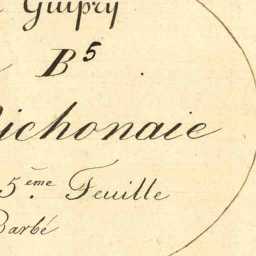 Guipry
B5
ichonaie
5.ème Feuille
Barbé